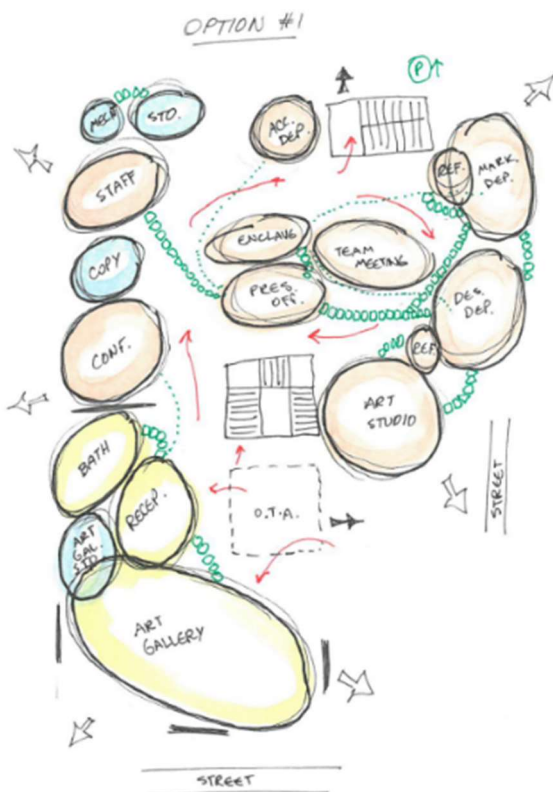 OPTION #1
P
MECH
STO.
ACC.
DEP.
REF.
MARK.
DEP.
STAFF
ENCLAVE
TEAM
MEETING
COPY
PRES.
OFF.
DES.
DEP.
CONF.
REF.
ART
STUDIO
BATH
RECEP.
STREET
O.T.A.
ART
GAL.
STO.
ART
GALLERY
STREET